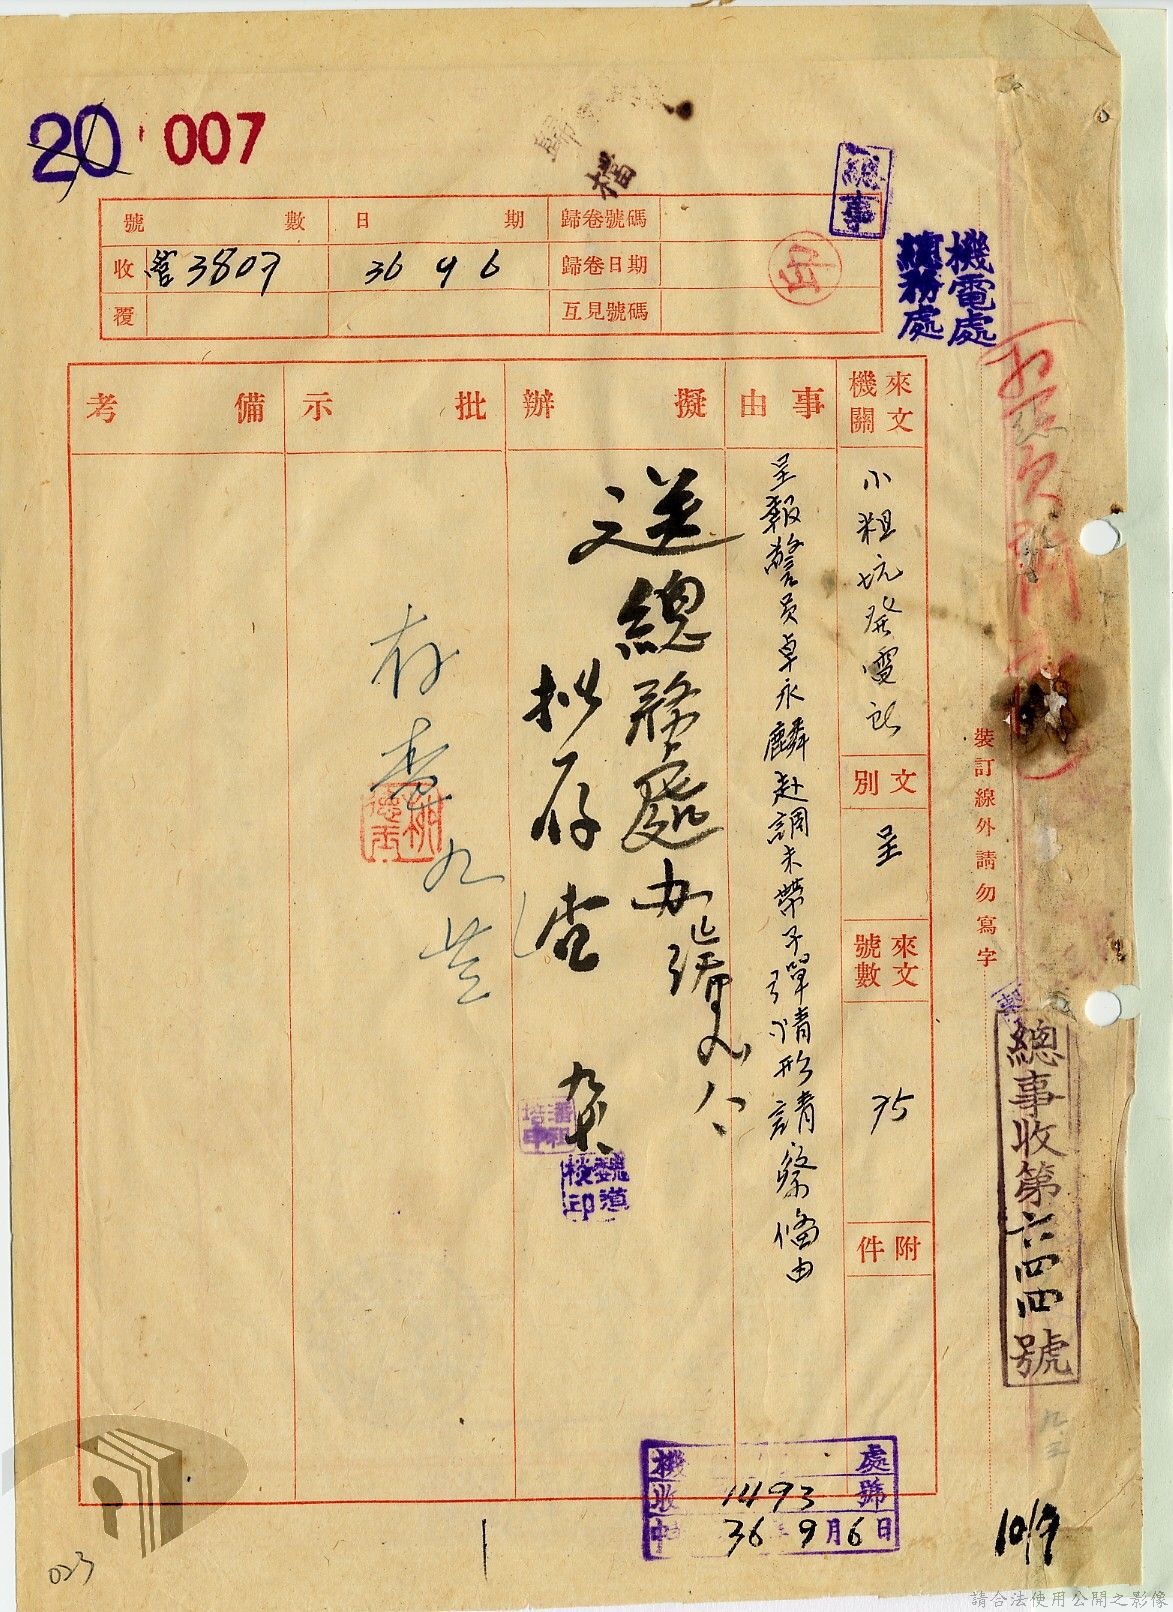 20
007
歸
檔
總事
機電處
總務處
號數
日期
歸卷號碼
收
營3807
36 9 6
歸卷日期
覆
互見號碼
來文機關
事由
擬辦
批示
備考
小粗坑發電所
文別
呈
來文號數
75
附件
呈報警員卓永麟赴調未帶子彈情形請鑒備由
送總務處办
拟存查
潘祖培印
魏道楼印
存查
裝訂線外請勿寫字
總事收第六四四號
機 處
收 1493 號
36年9月6日
10/9
023
請合法使用公開之影像